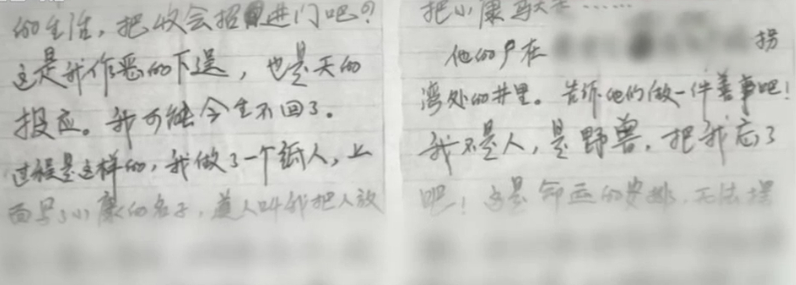 的生活，把收会招进门吧？
这是我作恶的下逞，也是天的
报应。我可能今生不回了。
过程是这样的，我做了一个纸人，上
面写了小康的名子，道人叫我把人放
把小康……
他的尸在 拐
湾处的井里。告诉他们做一件善事吧！
我不是人，是野兽，把我忘了
吧！这是命运的安排，无法摆